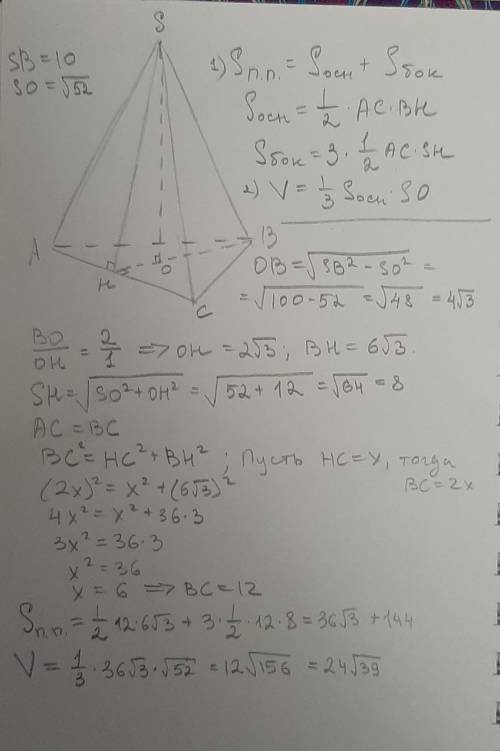 S
SB = 10
SO = √52
A
H
O
B
C
1) Sп.п. = Sосн + Sбок
Sосн = 1/2 · AC · BH
Sбок = 3 · 1/2 AC · SH
2) V = 1/3 Sосн · SO
OB = √(SB² − SO²) =
= √(100 − 52) = √48 = 4√3
BO/OH = 2/1 => OH = 2√3; BH = 6√3.
SH = √(SO² + OH²) = √(52 + 12) = √64 = 8
AC = BC
BC² = HC² + BH²; Пусть HC = x, тогда
BC = 2x
(2x)² = x² + (6√3)²
4x² = x² + 36·3
3x² = 36·3
x² = 36
x = 6 => BC = 12
Sп.п. = 1/2 · 12 · 6√3 + 3 · 1/2 · 12 · 8 = 36√3 + 144
V = 1/3 · 36√3 · √52 = 12√156 = 24√39